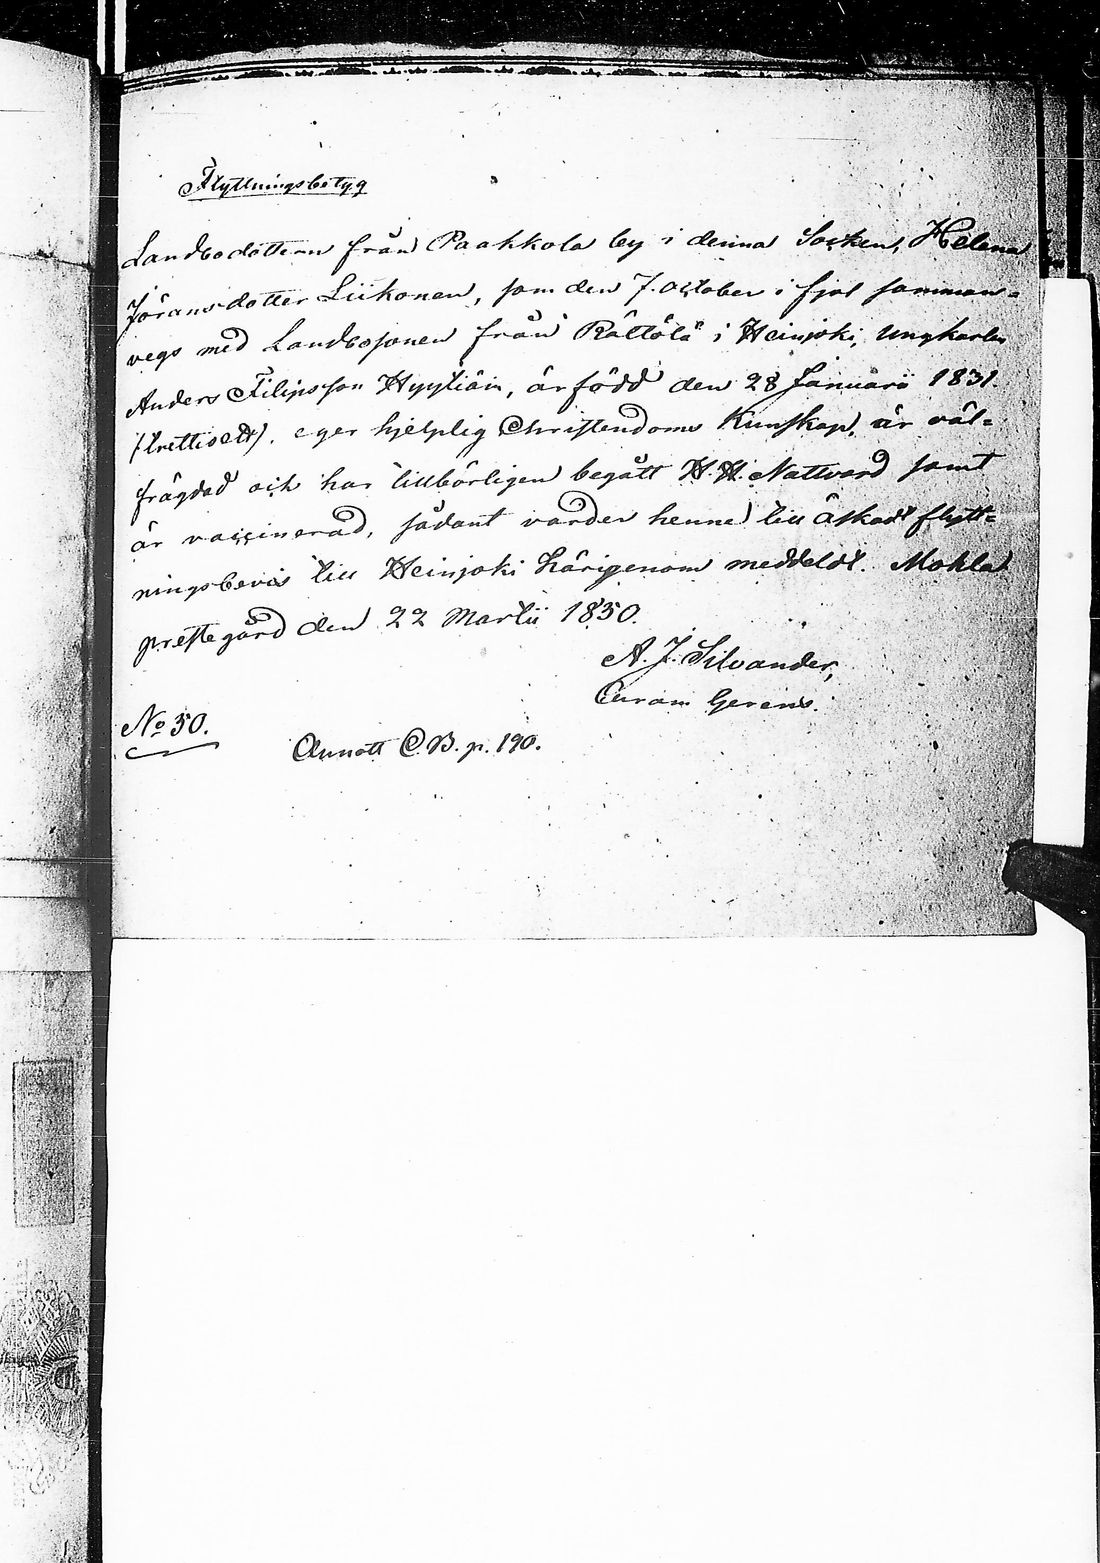 Flyttningsbetyg
Landbodottern från Paakkola by i denna Socken, Helena
Jöransdotter Liikonen, som den 7. October i fjol samman-
vegs med Landbosonen från Rättölä i Heinjoki, ungkarlen
Anders Filipsson Hyytiäin, är född den 28 Januarii 1831.
(trettioett), eger hjelplig Christendoms Kunskap, är väl-
frägdad och har tillbörligen begått H. H. Nattvard samt
är vaccinerad, sådant varder henne till äskadt flytt-
ningsbevis till Heinjoki härigenom meddeldt. Mohla
prestegård den 22 Martii 1850.
A. J. Silvander,
Curam Gerens.
No 50.
Annott C. B. p. 190.